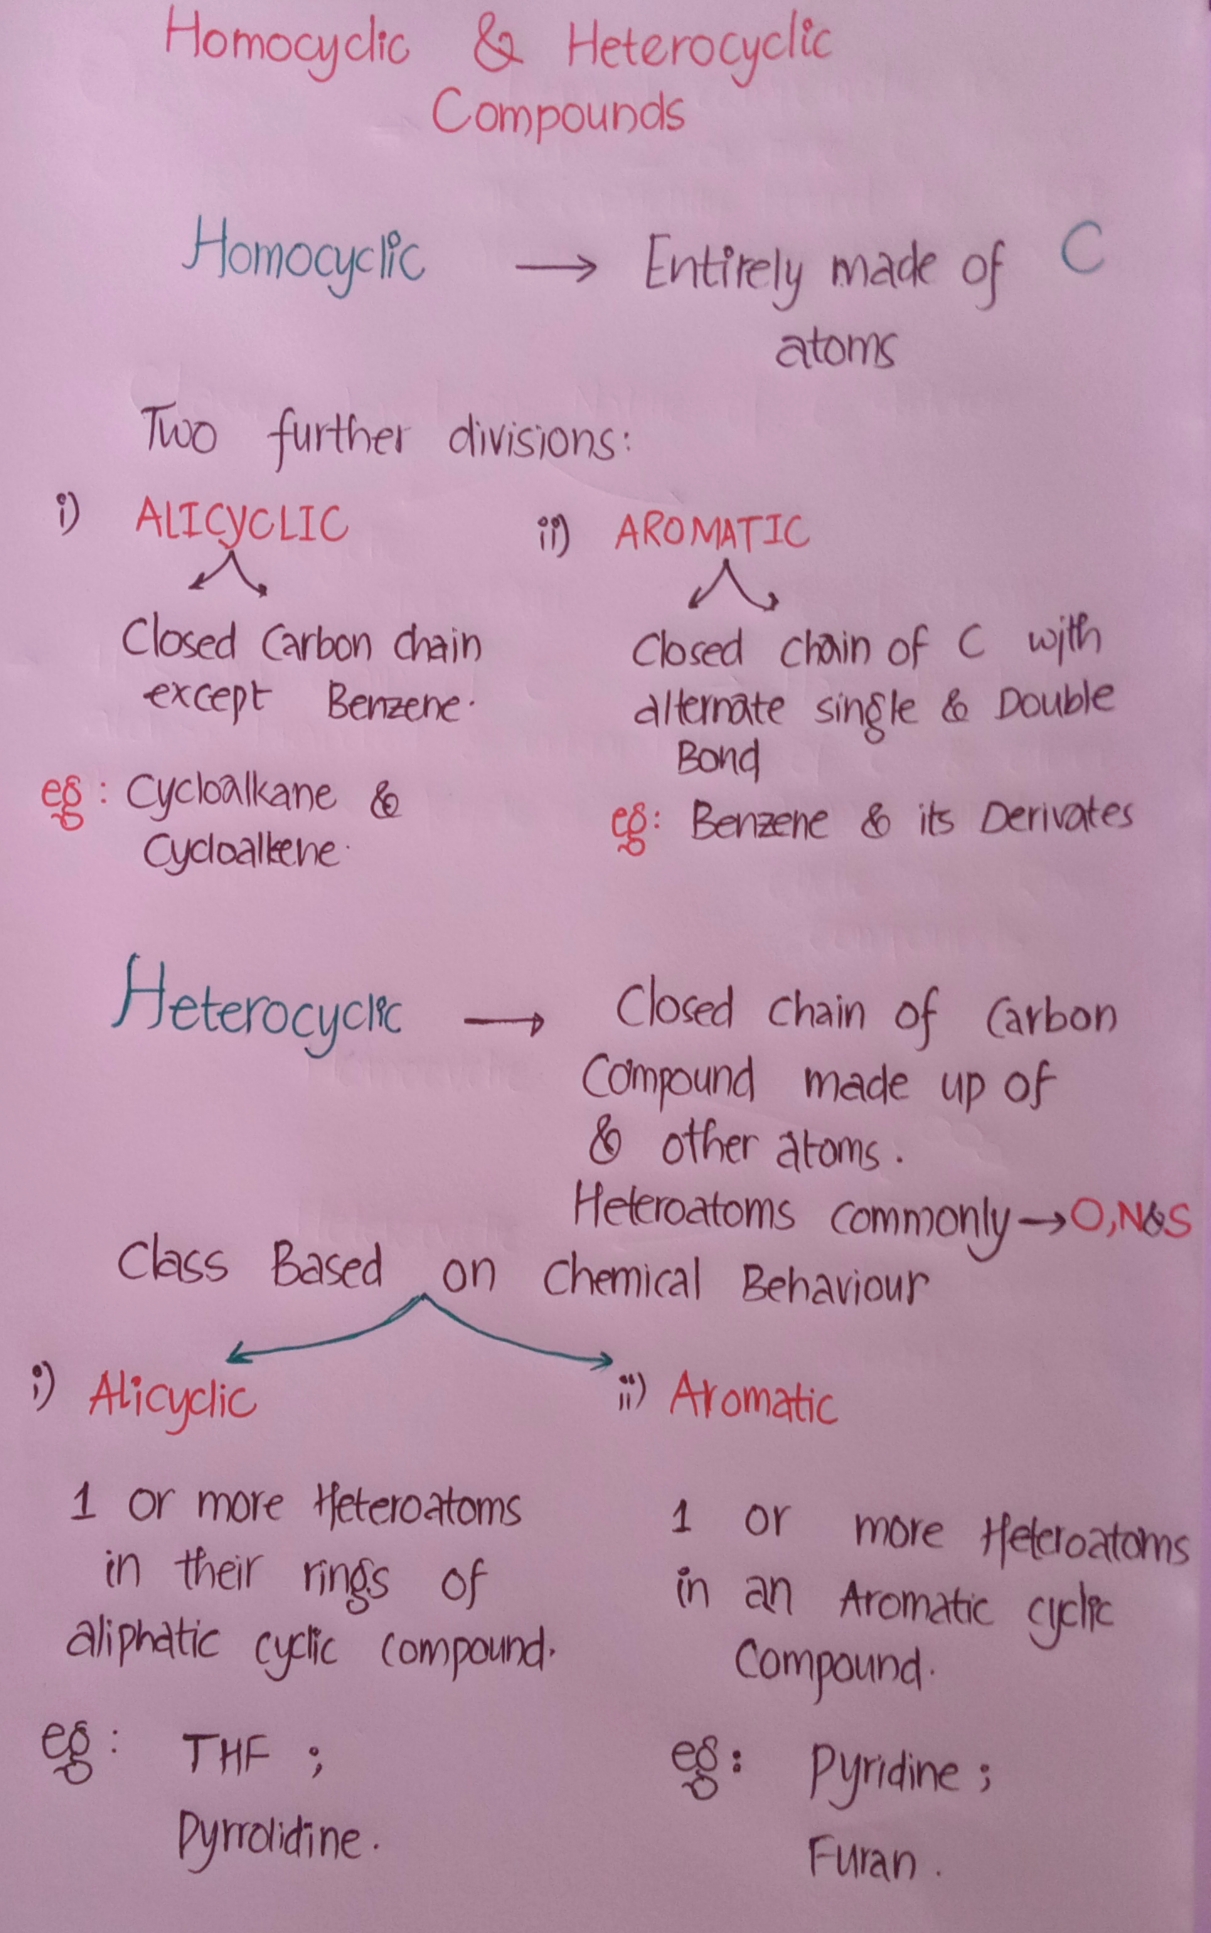 Homocyclic & Heterocyclic
Compounds
Homocyclic → Entirely made of C
atoms
Two further divisions:
i) ALICYCLIC
Closed Carbon chain
except Benzene.
eg: Cycloalkane &
Cycloalkene.
ii) AROMATIC
Closed chain of C with
alternate single & Double
Bond
eg: Benzene & its Derivates
Heterocyclic → Closed chain of Carbon
Compound made up of
& other atoms.
Heteroatoms commonly → O,N&S
Class Based on Chemical Behaviour
i) Alicyclic
1 or more Heteroatoms
in their rings of
aliphatic cyclic compound.
eg: THF ;
Pyrrolidine.
ii) Aromatic
1 or more Heteroatoms
in an Aromatic cyclic
Compound.
eg: Pyridine ;
Furan.